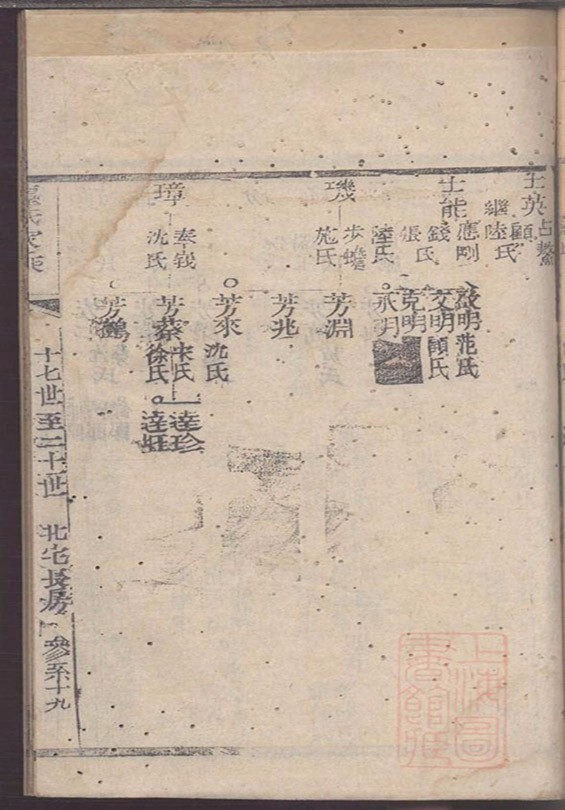 士英
占鰲
顧
陸氏
繼
士能
應剛
錢
氏
張
啟明
范氏
文明
顧氏
克明
承明
陸氏
璣
步蟾
施氏
芳淵
芳兆
芳來
沈氏
璋
奉峩
沈氏
芳蔡
宋氏
徐氏
達珍
達旺
芳鶴
氏家乘
十七世至二十一世 北宅長房 參 系十九
上海圖
書館藏